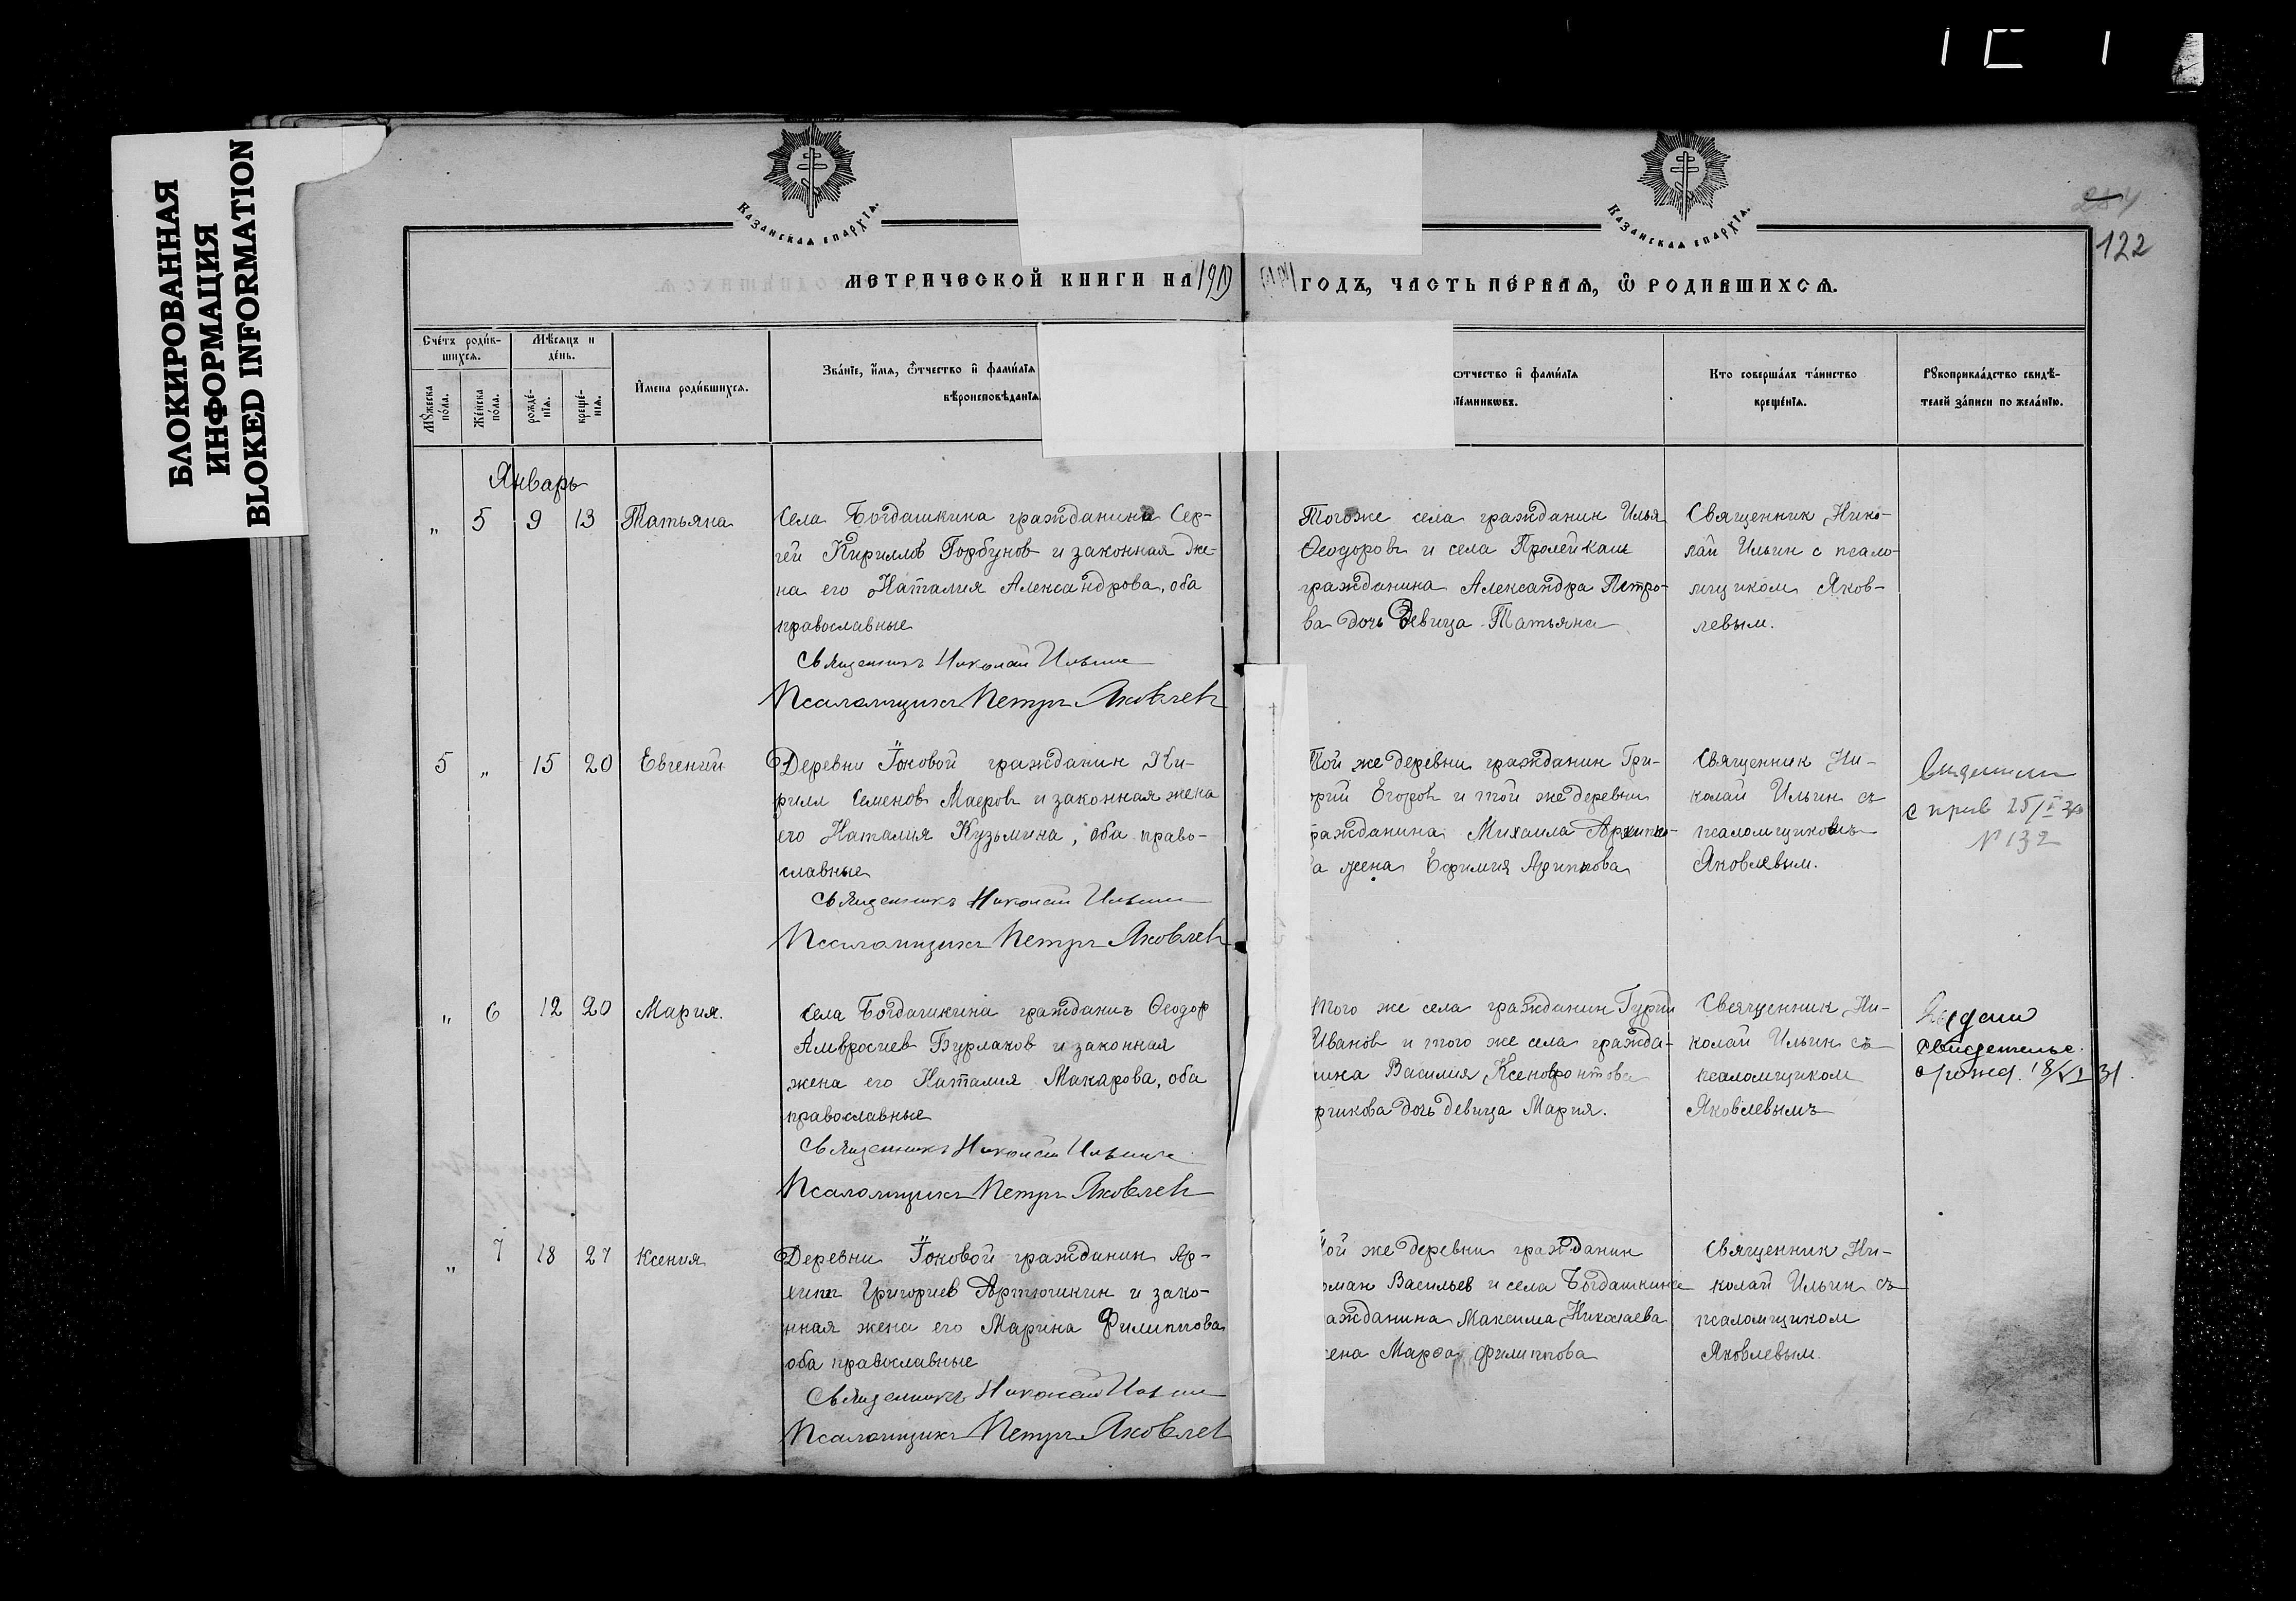 БЛОКИРОВАННАЯ
ИНФОРМАЦИЯ
BLOKED INFORMATION
Казанская епархія.
Казанская епархія.
122
МЕТРИЧЕСКОЙ КНИГИ НА 1919
ГОДЪ, ЧАСТЬ ПЕРВАЯ, Ѡ РОДИВШИХСЯ.
Счетъ родив-
шихся.
Мѣсяцъ и
день.
Имена родившихся.
Званіе, имя, ѿчество и фамилія
вѣроисповѣданія
ѿчество и фамилія
Кто совершалъ таинство
крещенія.
Рꙋкоприкладство свидѣ-
телей записи по желанію.
Мꙋжеска
пола.
Женска
пола.
рожде-
нія.
креще-
нія.
Январь
„ 5 9 13 Татьяна
Села Богдашкина гражданина Сер-
гей Кириллов Горбунов и законная же-
на его Наталия Александрова, оба
православные
Священникъ Николай Ильин
Псаломщикъ Петръ Яковлевъ
Тогоже села гражданин Илья
Ѳеодоровъ и села Пролейкаш
гражданина Александра Петро-
ва дочь девица Татьяна
Священник Нико-
лай Ильин с псало-
мщиком Яков-
левым.
5 „ 15 20 Евгений
Деревни Ïоковой гражданин Ки-
рилл Семенов Маеров и законная жена
его Наталия Кузьмина, оба право-
славные
Священникъ Николай Ильин
Псаломщикъ Петръ Яковлевъ
Той же деревни гражданин Гри-
орий Егоров и той же деревни
ражданина Михаила Архипо-
ва жена Ефимия
Священник Ни-
колай Ильин съ
псаломщикомъ
Яковлевым.
№ 132
„ 6 12 20 Мария.
Села Богдашкина гражданинъ Ѳеодор
Амвросиев Бурлаков и законная
жена его Наталия Макарова, оба
православные
Священникъ Николай Ильин
Псаломщикъ Петръ Яковлевъ
Того же села гражданин Гурий
Иванов и того же села гражда-
нина Василия Ксенофонтова
дочь девица Мария.
Священник Ни-
колай Ильин съ
псаломщиком
Яковлевымъ
Выдано
свидетельс.
о рожд. 18/VI 31.
„ 7 18 27 Ксения
Деревни Ïоковой гражданин Ар-
хипъ Григориев Артюшкин и зако-
нная жена его Марина Филиппова
оба православные
Священникъ Николай Ильин
Псаломщикъ Петръ Яковлев
Той же деревни гражданин
оман Васильев и села Богдашкина
ажданина Максима Николаева
ена Марѳа Филиппова
Священник Ни-
колай Ильин съ
псаломщиком
Яковлевым.